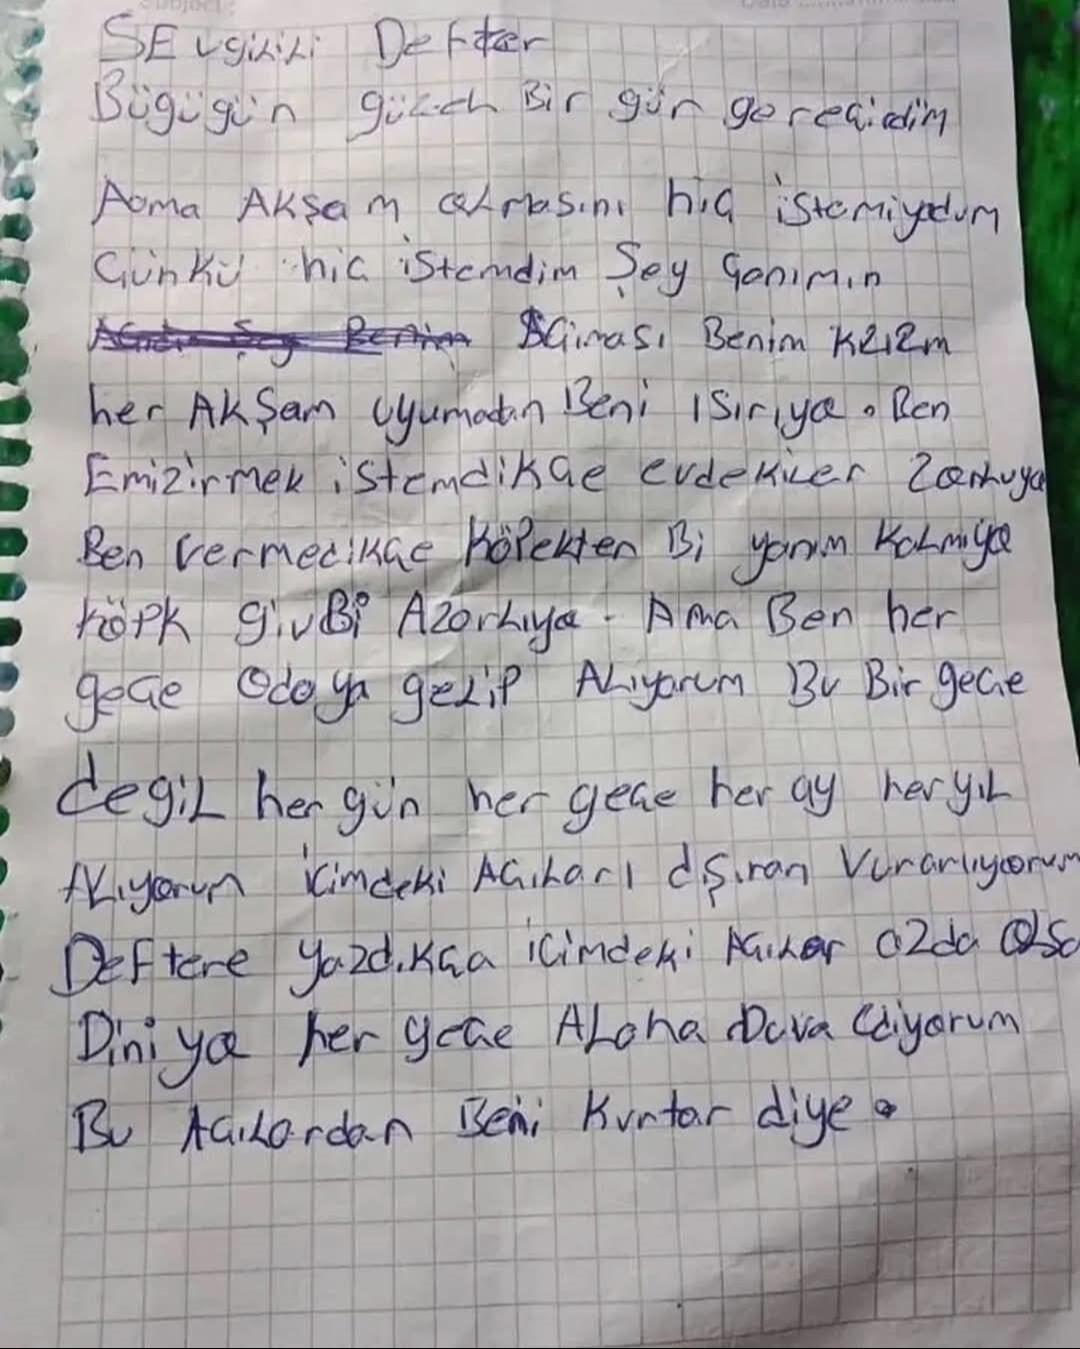 SEvgiLiLi DeFter
Bügügün güzeh Bir gün gereçirdim
Aoma AKşam oLmasını hiç istemiyodum
Günkü hic istemdim Şey Ganımın
AGıması Benim Kızızm
her AKŞam uyumadan Beni ısırıya. Ben
Emizirmek istemdikGe evdekiLer Zorluya
Ben vermedikGe KöPekten Bi yanım KaLmıya
Köpk givBi AzorLıya. Ama Ben her
geGe Odaya geLiP ALıyorum Bu Bir geGe
degiL her gün her geGe her ay her yıL
ALıyorum içimdeki AGıLarı dışıran Vurarlıyorum
DeFtere yazdıkGa içimdeki AGıLar azda oLsa
Diniya her geGe ALoha Duva Ediyorum
Bu AGıLardan Beni Kurtar diye.